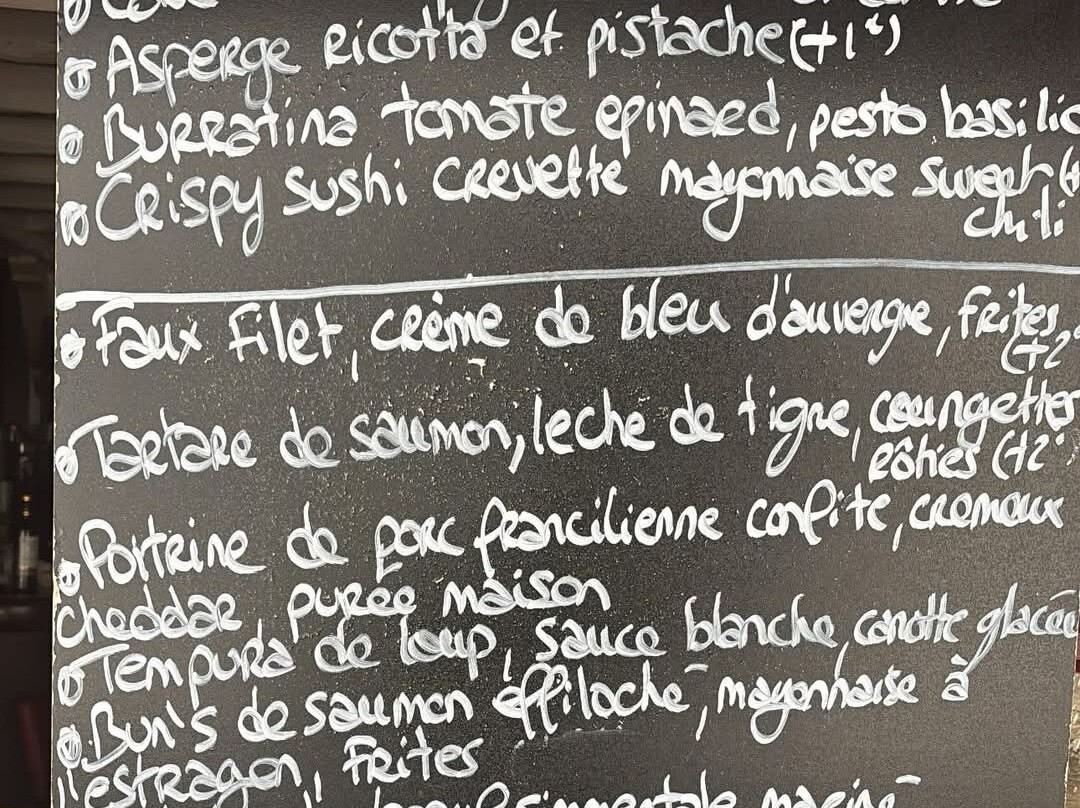 Asperge ricotta et pistache (+1€)
Burratina tomate epinard, pesto basilic
Crispy sushi crevette mayonnaise sweet (+
chili
Faux Filet, crème de bleu d'auvergne, frites
(+2
Tartare de saumon, leche de tigre, courgettes
rôties (+2
Poitrine de porc francilienne confite, cremeux
cheddar, purée maison
Tempura de loup, sauce blanche, carotte glacée
Bun's de saumon éffiloché, mayonnaise à
l'estragon, Frites